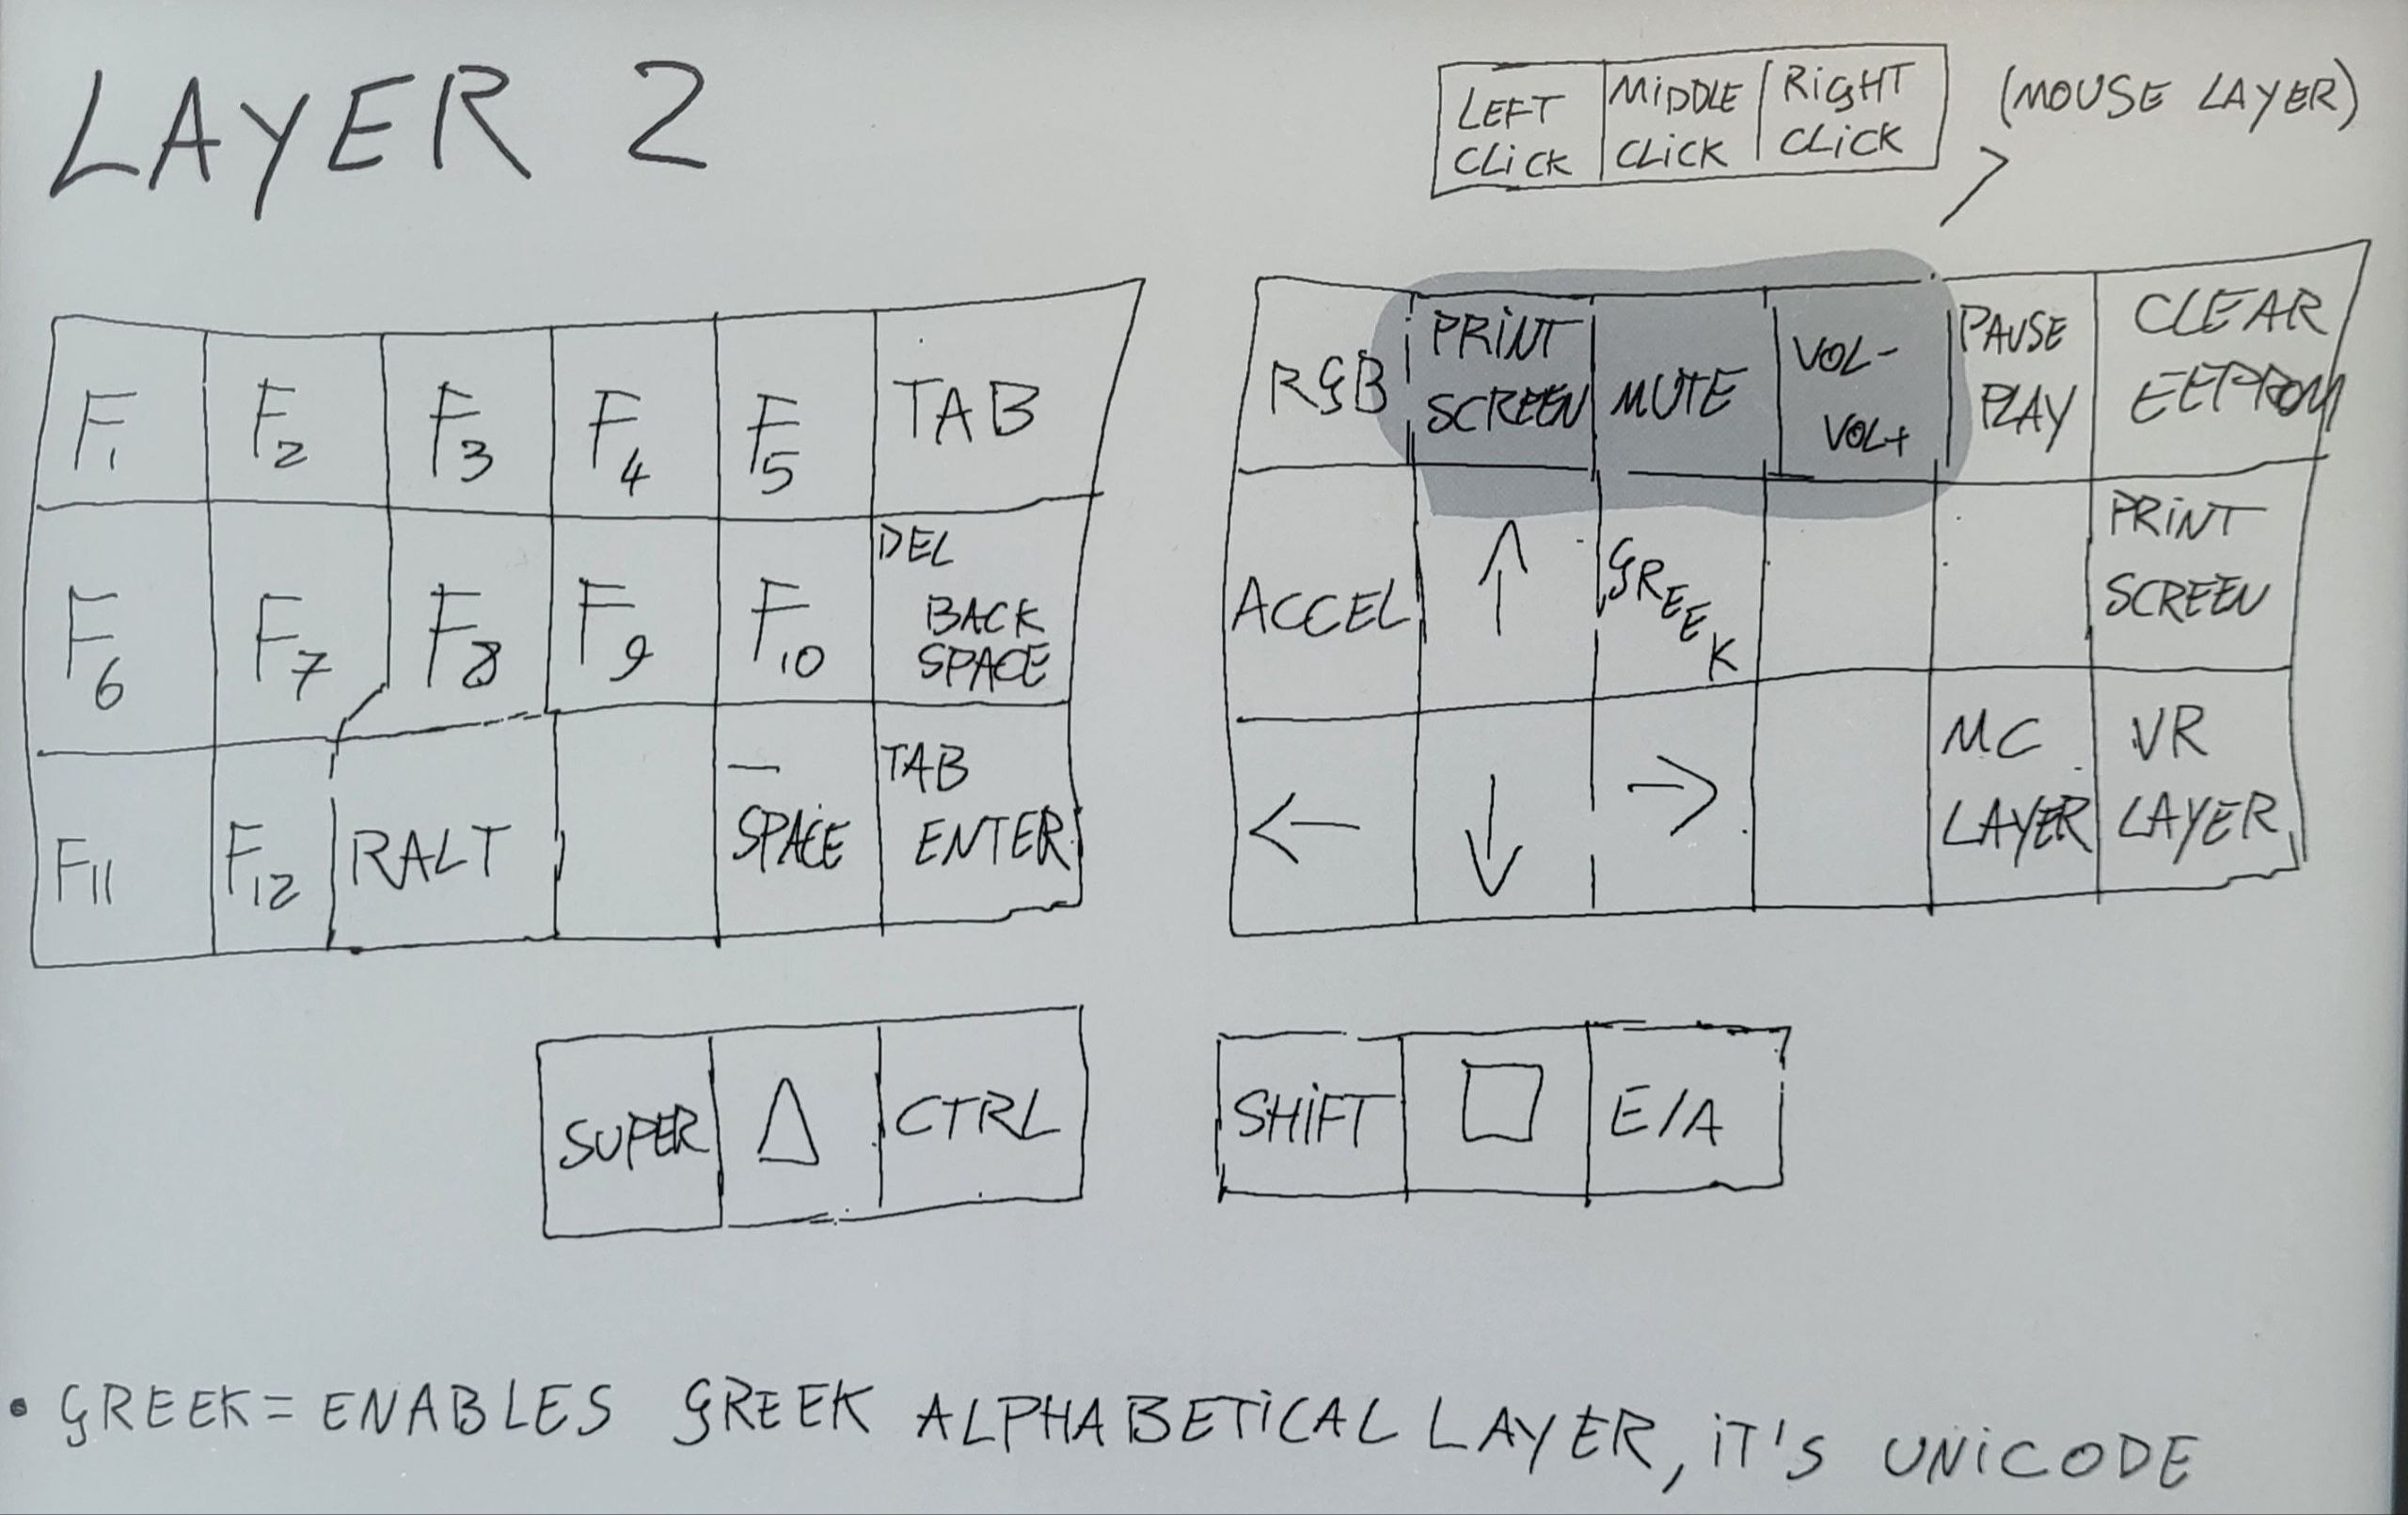 LAYER 2
LEFT CLICK
MIDDLE CLICK
RIGHT CLICK
(MOUSE LAYER)
F1 F2 F3 F4 F5 TAB
F6 F7 F8 F9 F10 DEL BACK SPACE
F11 F12 RALT — SPACE TAB ENTER
RGB PRINT SCREEN MUTE VOL- VOL+ PAUSE PLAY CLEAR EEPROM
ACCEL ↑ GREEK PRINT SCREEN
← ↓ → MC LAYER VR LAYER
SUPER △ CTRL
SHIFT □ E/A
• GREEK = ENABLES GREEK ALPHABETICAL LAYER, IT'S UNICODE